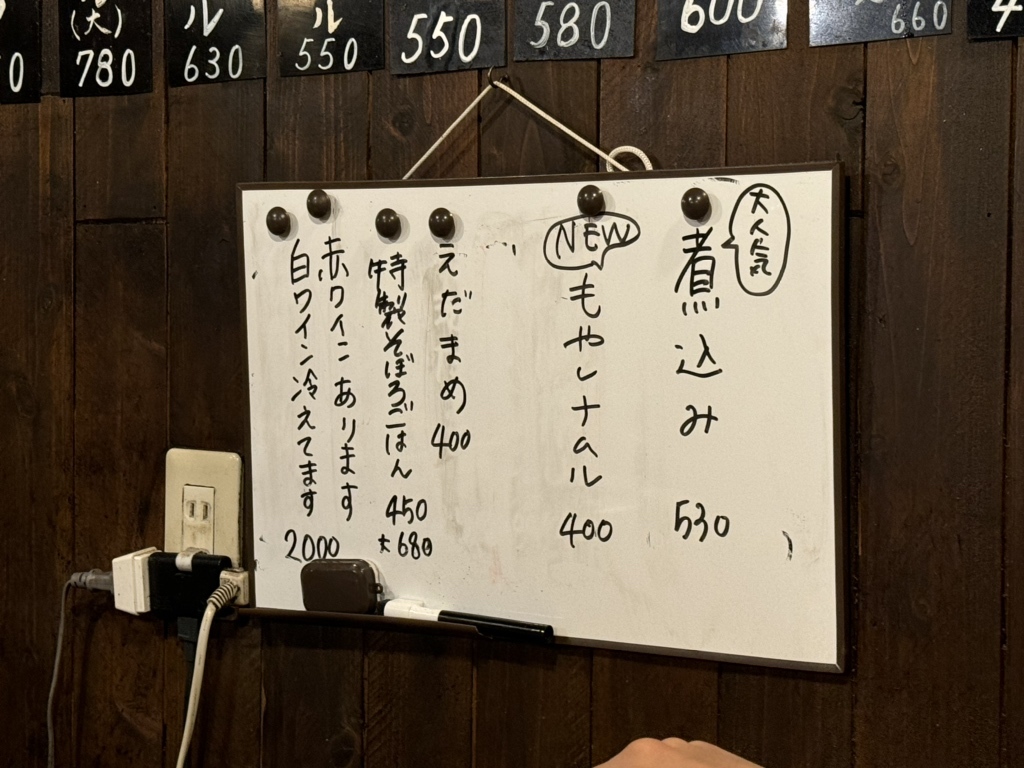 (大)
780
ル
630
ル
550
550
580
600
660
大人気
煮込み 530
NEW
もやしナムル 400
えだまめ 400
特製そぼろごはん 450
大 680
赤ワインあります
白ワイン冷えてます
2000